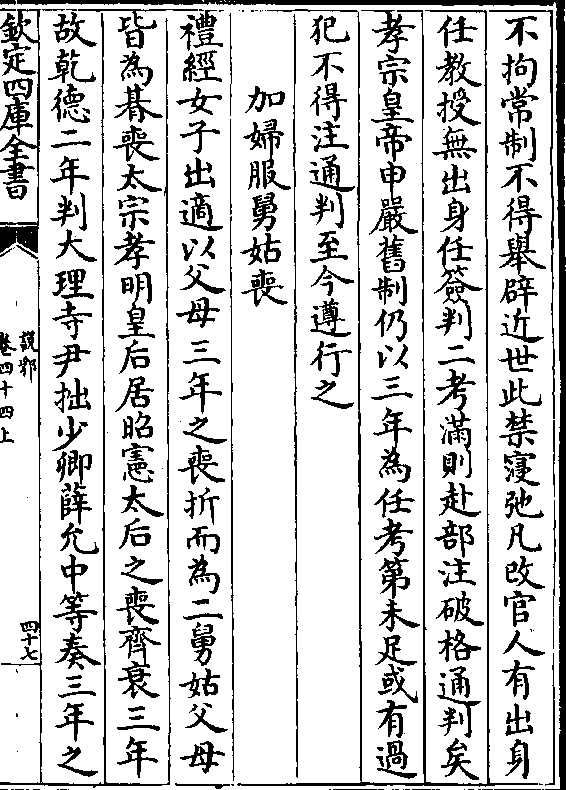 不拘常制不得舉辟近世此禁寖弛凡改官人有出身
任教授無出身任簽判二考滿則赴部注破格通判矣
孝宗皇帝申嚴舊制仍以三年為任考第未足或有過
犯不得注通判至今遵行之
加婦服舅姑喪
禮經女子出適以父母三年之喪折而為二舅姑父母
皆為朞喪太宗孝明皇后居昭憲太后之喪齊衰三年
故乾德二年判大理寺尹拙少卿薛允中等奏三年之
欽定四庫全書
說郛
卷四十四上
四十七